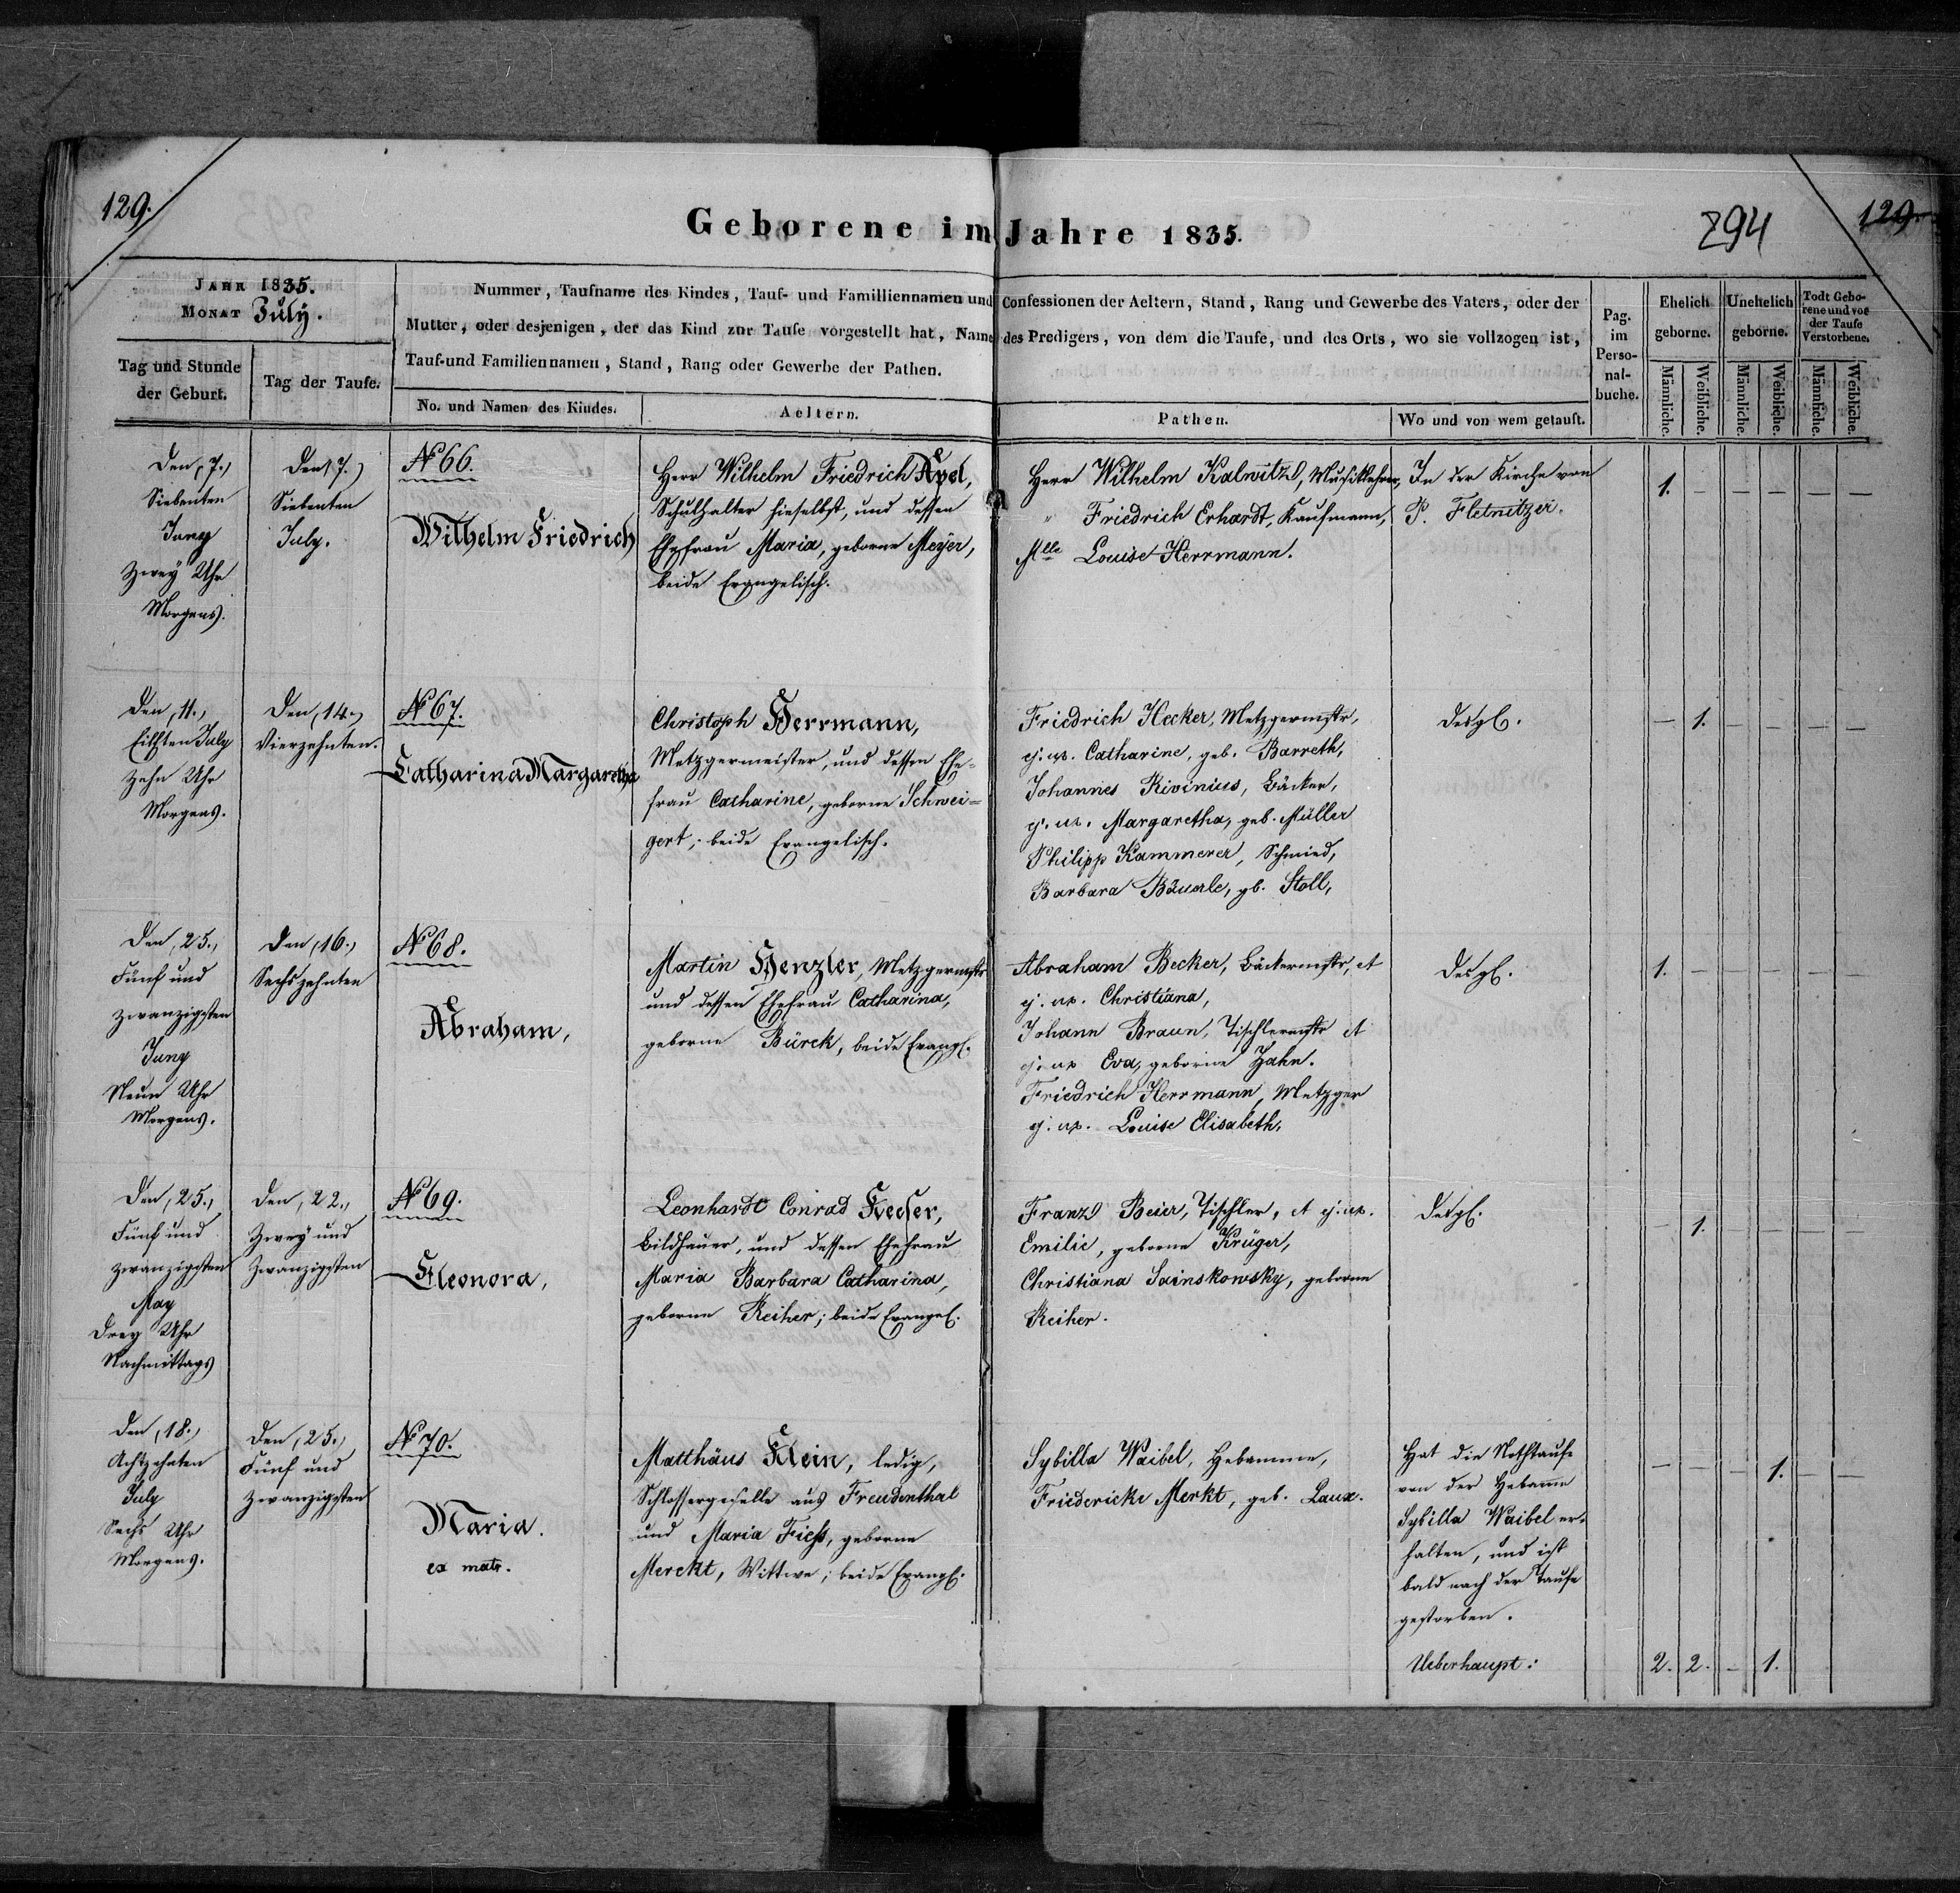 129.
Geborene im Jahre 1835.
294
129.
JAHR 1835.
MONAT July.
Tag und Stunde
der Geburt.
Tag der Taufe.
Nummer, Taufname des Kindes, Tauf- und Familliennamen und Confessionen der Aeltern, Stand, Rang und Gewerbe des Vaters, oder der
Mutter, oder desjenigen, der das Kind zur Taufe vorgestellt hat, Name des Predigers, von dem die Taufe, und des Orts, wo sie vollzogen ist,
Tauf-und Familiennamen, Stand, Rang oder Gewerbe der Pathen.
No. und Namen des Kindes.
Aeltern.
Pathen.
Wo und von wem getauft.
Pag.
im
Perso-
nal-
buche.
Ehelich
geborne.
Unehelich
geborne.
Todt Gebo-
rene und vor
der Taufe
Verstorbene.
Männliche.
Weibliche.
Männliche.
Weibliche.
Männliche.
Weibliche.
Den 7.,
Siebenten
Juny
Zwey Uhr
Morgens.
Den 7.,
Siebenten
July.
No 66.
Wilhelm Friedrich
Herr Wilhelm Friedrich Apel,
Schulhalter hieselbst, und dessen
Ehefrau Maria, geborne Meyer,
beide Evangelisch.
Herr Wilhelm Kalnitz, Musiklehrer,
" Friedrich Erhardt, Kaufmann,
Mlle Louise Herrmann.
In der Kirche von
P. Fletnitzer.
1. – – – – –
Den 11.,
Eilften July
Zehn Uhr
Morgens.
Den 14.,
Vierzehnten.
No 67.
Catharina Margaretha
Christoph Herrmann,
Metzgermeister, und dessen Ehe-
frau Catharine, geborne Schwei=
gert; beide Evangelisch.
Friedrich Hecker, Metzgermstr,
ej. ux. Catharine, geb. Barreth,
Johannes Rivinius, Bäcker,
ej. ux. Margaretha, geb. Müller
Philipp Kammerer, Schmied,
Barbara Bäuerle, gb. Stoll,
Desgl.
– 1. – – – –
Den 25.,
Fünf und
zwanzigsten
Juny
Neun Uhr
Morgens.
Den 16.,
Sechszehnten
No 68.
Abraham,
Martin Henzler, Metzgermstr
und dessen Ehefrau Catharina,
geborne Bürck, beide Evangl.
Abraham Becker, Bäckermstr, et
ej. ux. Christiana,
Johann Braun, Tischlermstr et
ej. ux Eva, geborne Hahn.
Friedrich Herrmann, Metzger
ej. ux. Louise Elisabeth,
Desgl.
1. – – – – –
Den 25.,
Fünf und
zwanzigsten
May
Drey Uhr
Nachmittags
Den 22.,
Zwey und
Zwanzigsten
No 69.
Eleonora,
Leonhardt Conrad
Bildhauer, und dessen Ehefrau
Maria Barbara Catharina,
geborne Reiher; beide Evangel.
Franz Beier, Tischler, et ej. ux.
Emilie, geborne Krüger,
Christiana Sainskowsky, geborne
Reiher.
Desgl.
– 1. – – – –
Den 18.,
Achtzehnten
July
Sechs Uhr
Morgens.
Den 25.,
Fünf und
zwanzigsten
No 70.
Maria.
ex matr.
Matthäus Klein, ledig,
Schlossergeselle aus Freudenthal
und Maria Fiess, geborne
Merckt, Wittwe; beide Evangl.
Sybilla Waibel, Hebamme,
Friedericke Merkt, geb. Laux.
Hat die Nothtaufe
von der Hebamme
Sybilla Waibel er-
halten, und ist
bald nach der Taufe
gestorben.
– – – 1. – –
Ueberhaupt: 2. 2. – 1.